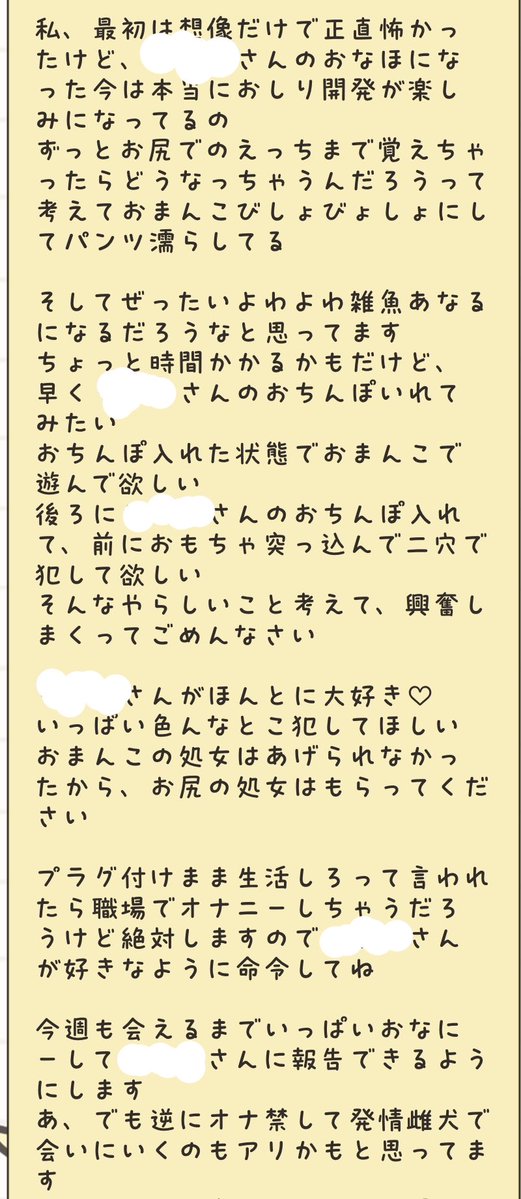 私、最初は想像だけで正直怖かっ
たけど、さんのおなほにな
った今は本当におしり開発が楽し
みになってるの
ずっとお尻でのえっちまで覚えちゃ
ったらどうなっちゃうんだろうって
考えておまんこびしょびょしょにし
てパンツ濡らしてる
そしてぜったいよわよわ雑魚あなる
になるだろうなと思ってます
ちょっと時間かかるかもだけど、
早く さんのおちんぽいれて
みたい
おちんぽ入れた状態でおまんこで
遊んで欲しい
後ろに さんのおちんぽ入れ
て、前におもちゃ突っ込んで二穴で
犯して欲しい
そんなやらしいこと考えて、興奮し
まくってごめんなさい
さんがほんとに大好き♡
いっぱい色んなとこ犯してほしい
おまんこの処女はあげられなかっ
たから、お尻の処女はもらってくだ
さい
プラグ付けまま生活しろって言われ
たら職場でオナニーしちゃうだろ
うけど絶対しますので さん
が好きなように命令してね
今週も会えるまでいっぱいおなに
ーして さんに報告できるよう
にします
あ、でも逆にオナ禁して発情雌犬で
会いにいくのもアリかもと思ってま
す